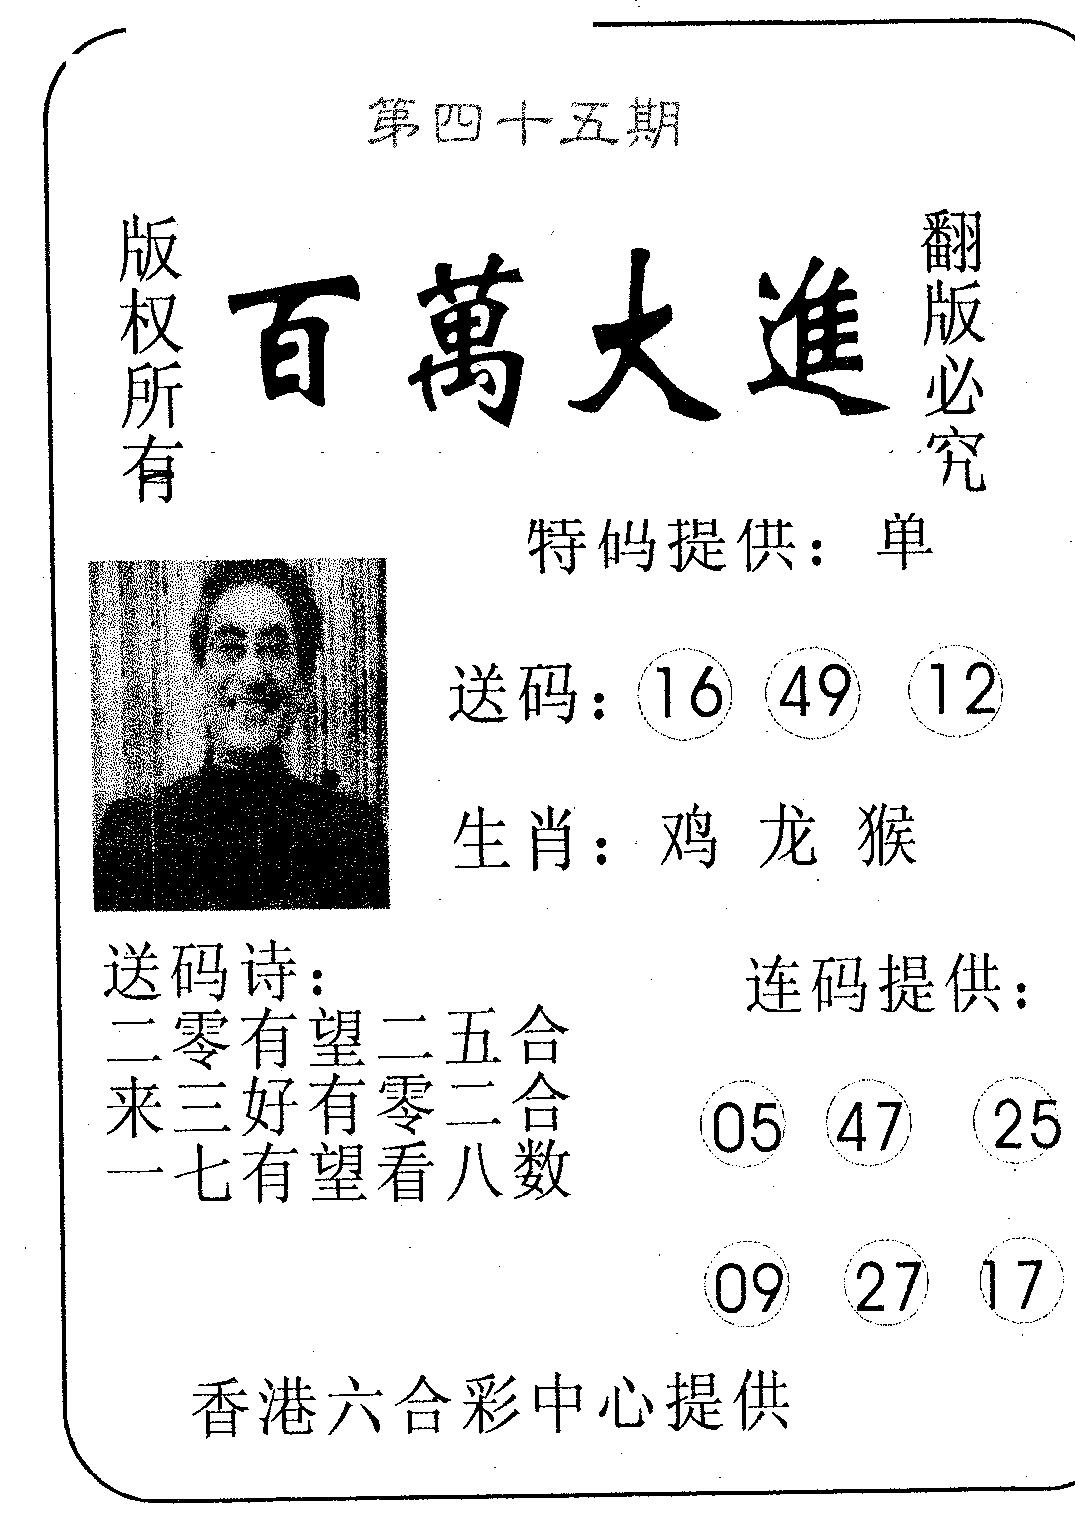 第四十五期
版权所有
百萬大進
翻版必究
特码提供：单
送码：16 49 12
生肖：鸡 龙 猴
送码诗：
二零有望二五合
来三好有零二合
一七有望看八数
连码提供：
05 47 25
09 27 17
香港六合彩中心提供